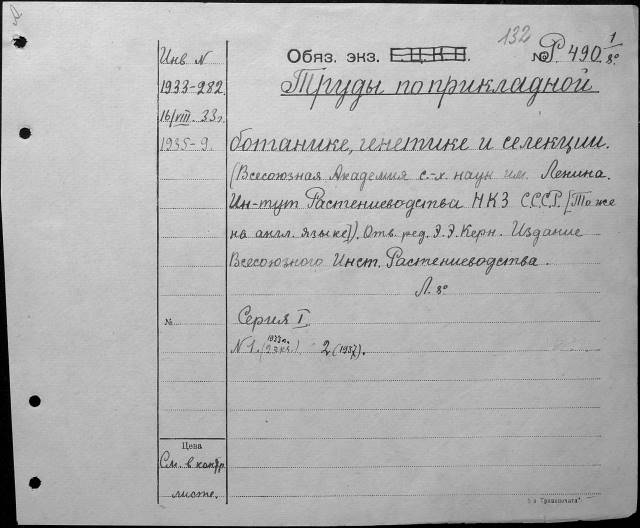 132
Инв N
Обяз. экз. Е.Ц.К.П. № Р. 490 1/8°
1933-282
Труды по прикладной
16/VIII. 33г.
1935-9.
ботанике, генетике и селекции.
(Всесоюзная Академия с.-х. наук им. Ленина.
Ин-тут Растениеводства НКЗ С.С.С.Р. [То же
на англ. языке]). Отв. ред. Э.Э. Керн. Издание
Всесоюзного Инст. Растениеводства.
Л. 8°
№ Серия I
N 1. (2 экз.) 2 (1937).
Цена
См. в контр
листе.